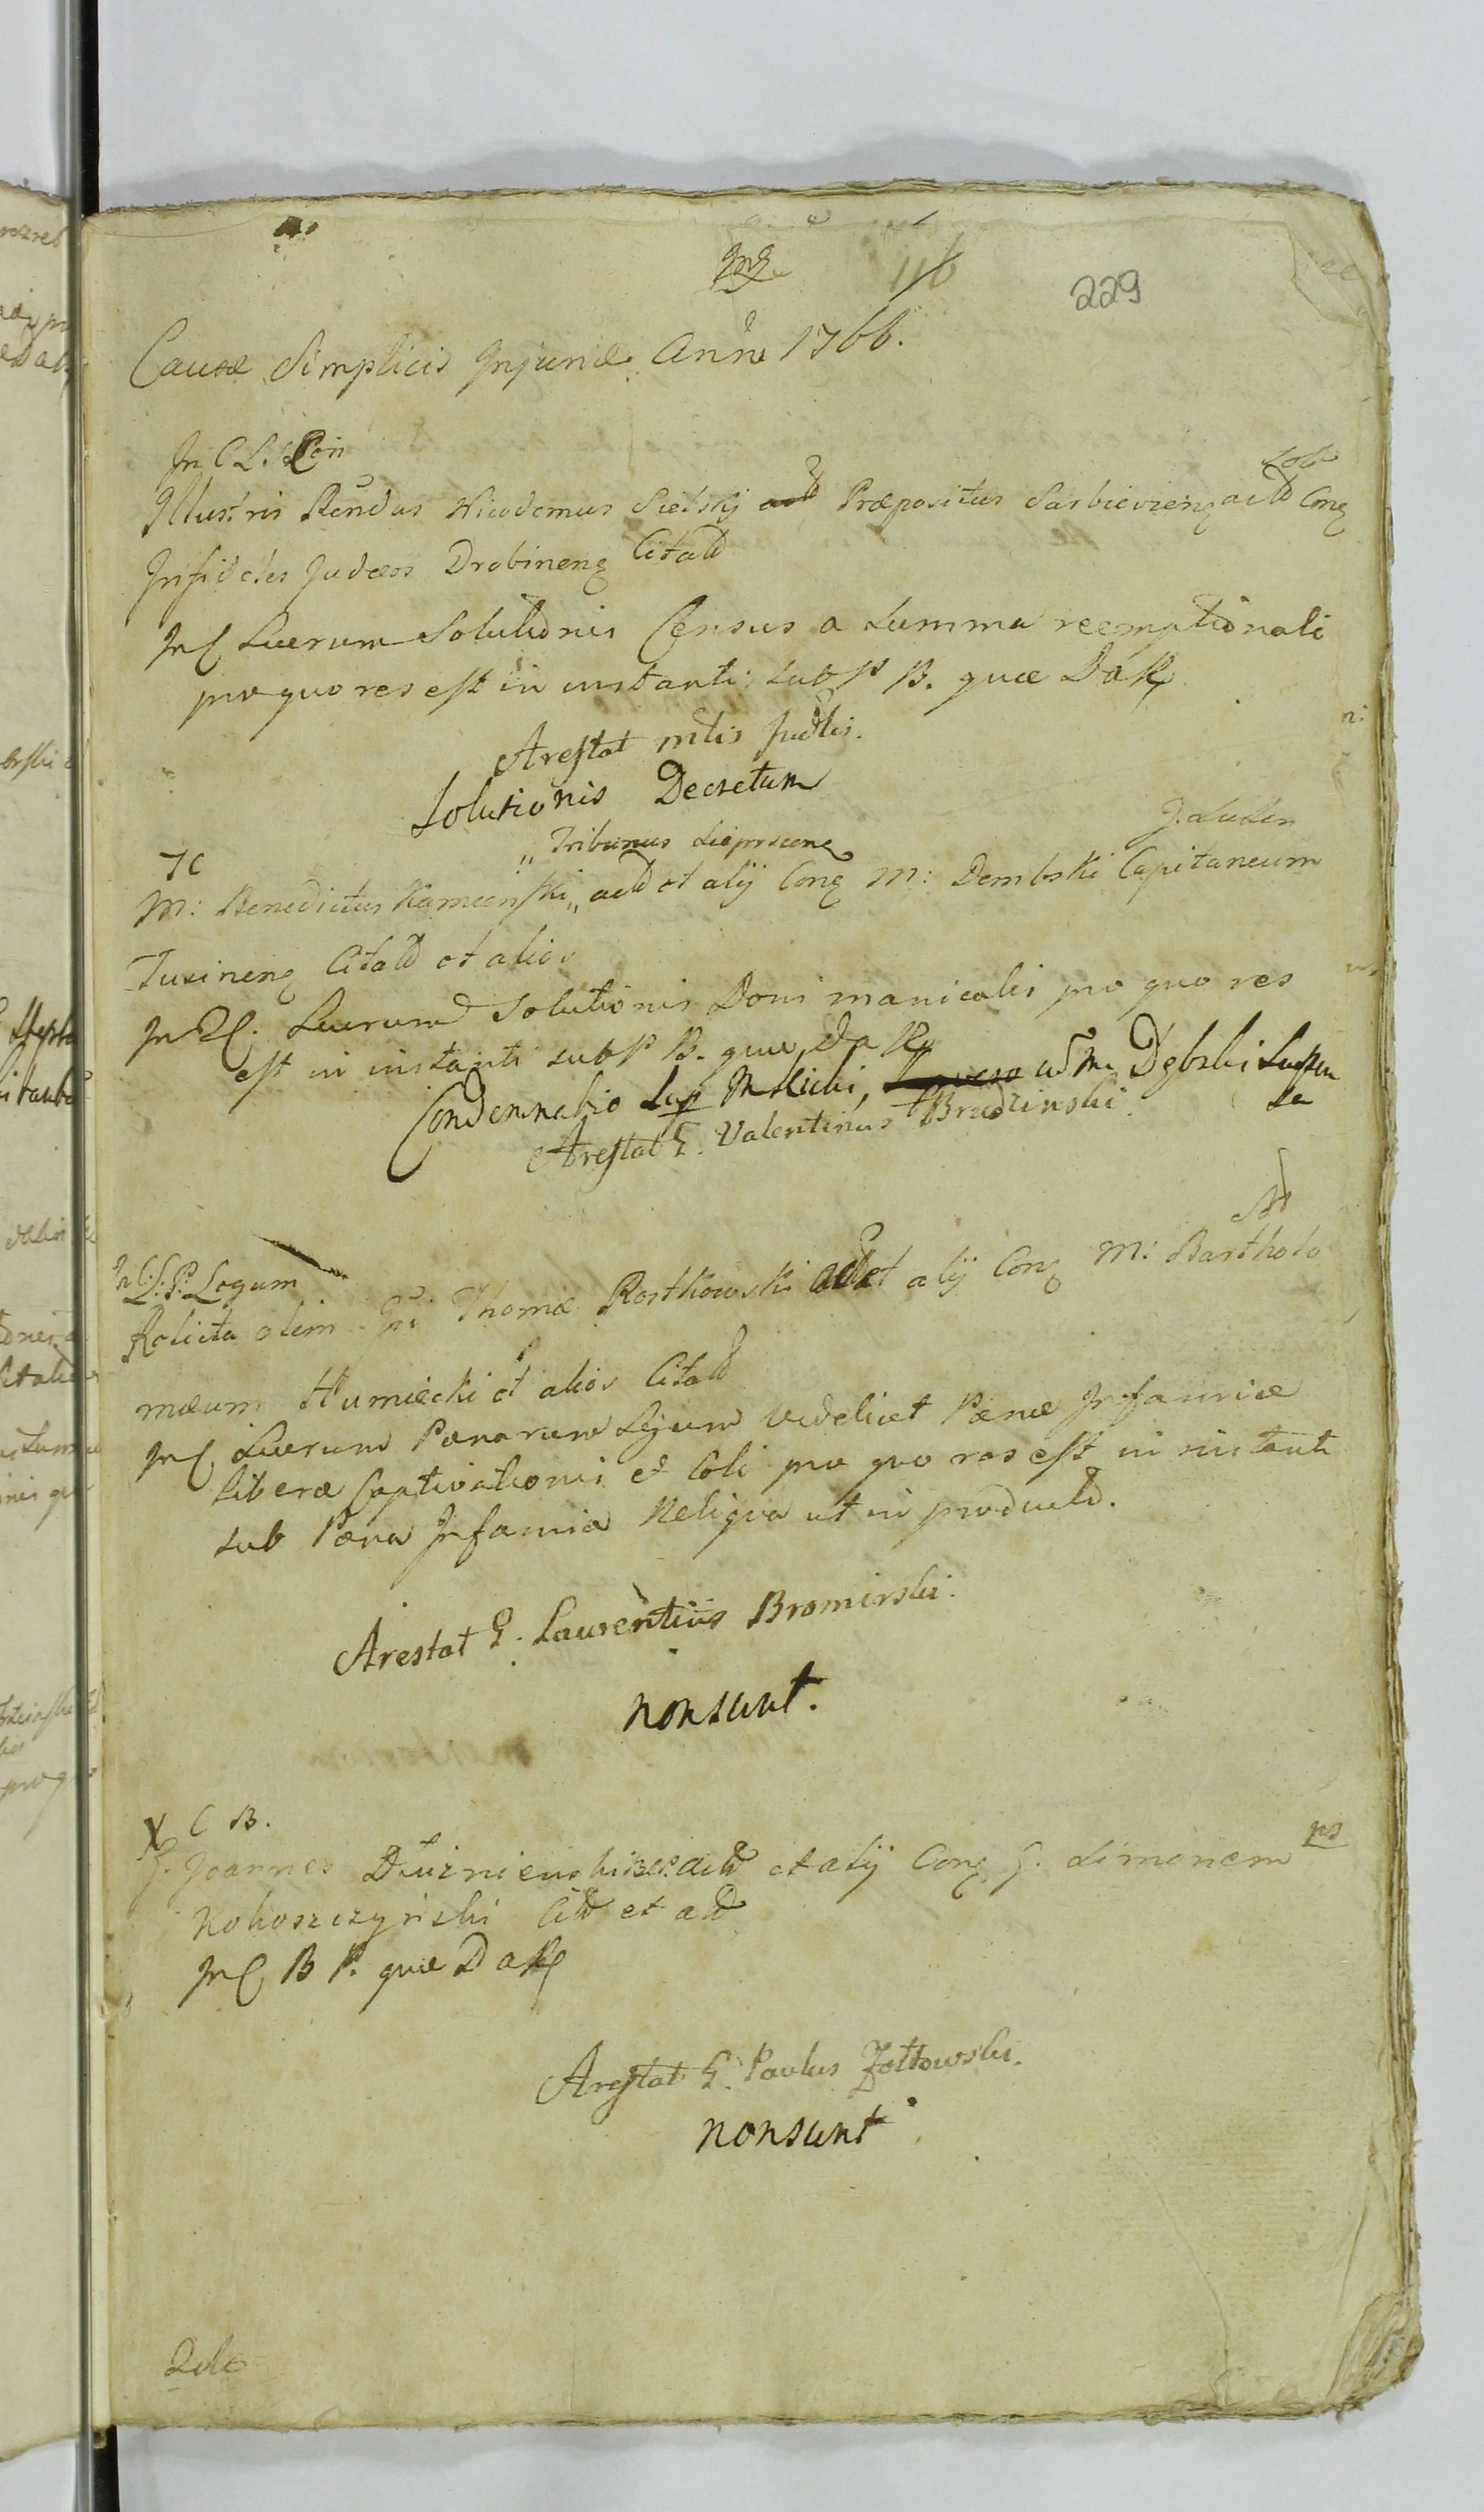 116
229
Causæ Simplicis Injuriæ Anni 1766.
In C L.
Illustris Rendus Nicodemus Sielski Præpositus Sarbievieng actd Cong
Infideles Judæos Drobineng Citatd
In C Luerum Solutionis Census a Summa reemptionali
pro quo res est in instanti sub P B. quæ Da R
Arestat mtis Judlis.
Solutionis Decretum
Tribunus Sieprsceng
7C
M: Benedictus Kamienski actd et alij Cong M: Dembski Capitaneum
Tuxineng Citatd et alios
In C. Luerum Solutionis Doni manicalis pro quo res
est in instanti sub P B. quæ Da R
Condemnatio Sup Mslicki, ad M Dębski Suspen
sa
Arestat G. Valentinus Brudzinski.
In C: L: P: Legum
Relicta olim Gsi Thomæ Rostkowski actd et alij Cong M: Bartholo
mæum Humiecki et alios Citatd
In C Luerum Pœnarum Legum videlicet Pœnæ Infamiæ
liberæ Captivationis et Coli pro quo res est in instanti
sub Pœna Infamiæ Reliqua ut in productd.
Arestat G. Laurentius Bromirski.
non sunt.
X C B.
G. Joannes actd et alij Cong G. Simonem
Kokoszczynski Citd et ad
In C B P. quæ Da R
Arestat G. Paulus Zołtowski.
non sunt